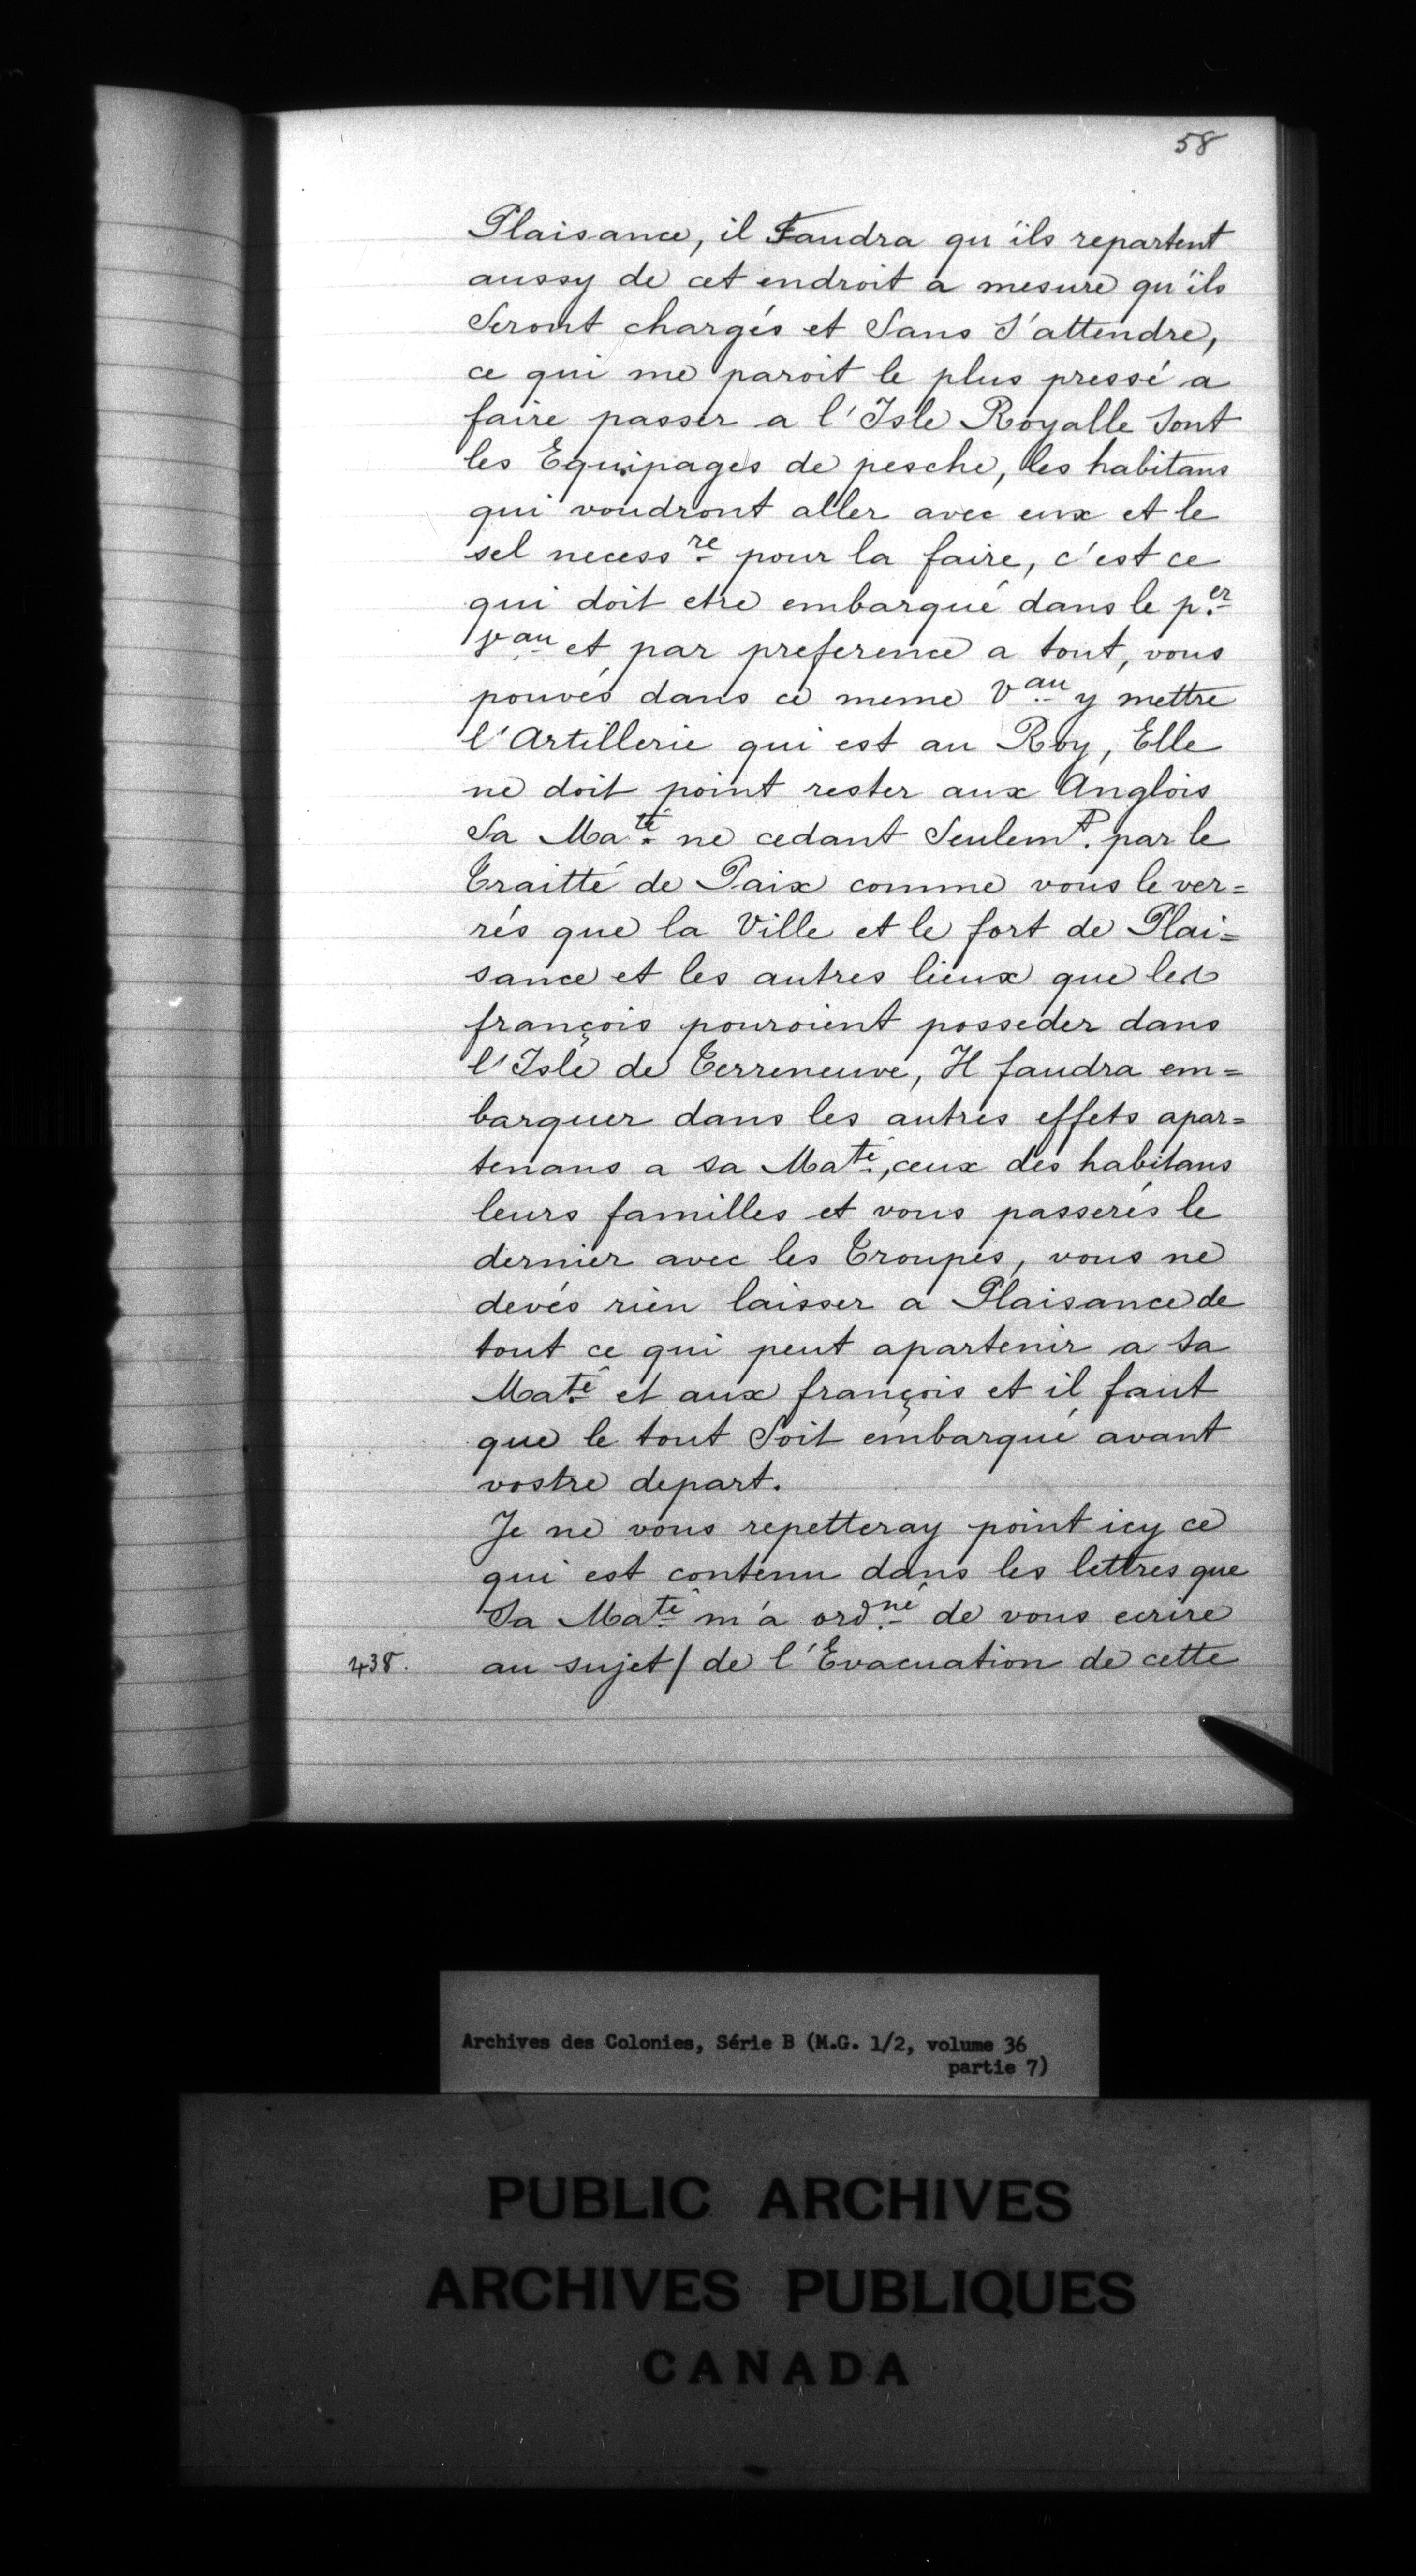 58
Plaisance, il Faudra qu'ils repartent
aussy de cet endroit a mesure qu'ils
Seront chargés et Sans S'attendre,
ce qui me paroit le plus pressé a
faire passer a l'Isle Royalle Sont
les Equipages de pesche, les habitans
qui voudront aller avec eux et le
sel necess.re pour la faire, c'est ce
qui doit etre embarqué dans le p.er
v.au et par preference a tout, vous
pouvés dans ce meme V.au y mettre
l'Artillerie qui est au Roy, Elle
ne doit point rester aux Anglois
Sa Ma.té ne cedant Seulem.t par le
Traitté de Paix comme vous le ver=
rés que la Ville et le fort de Plai=
sance et les autres lieux que les
françois pouroient posseder dans
l'Isle de Terreneuve, Il faudra em=
barquer dans les autres effets apar=
tenans a sa Ma.té, ceux des habitans
leurs familles et vous passerés le
dernier avec les Troupes, vous ne
devés rien laisser a Plaisance de
tout ce qui peut apartenir a Sa
Ma.té et aux françois et il faut
que le tout Soit embarqué avant
vostre depart.
Je ne vous repetteray point icy ce
qui est contenu dans les lettres que
Sa Ma.té m'a ord.né de vous ecrire
438. au sujet / de l'Evacuation de cette
Archives des Colonies, Série B (M.G. 1/2, volume 36
partie 7)
PUBLIC ARCHIVES
ARCHIVES PUBLIQUES
CANADA